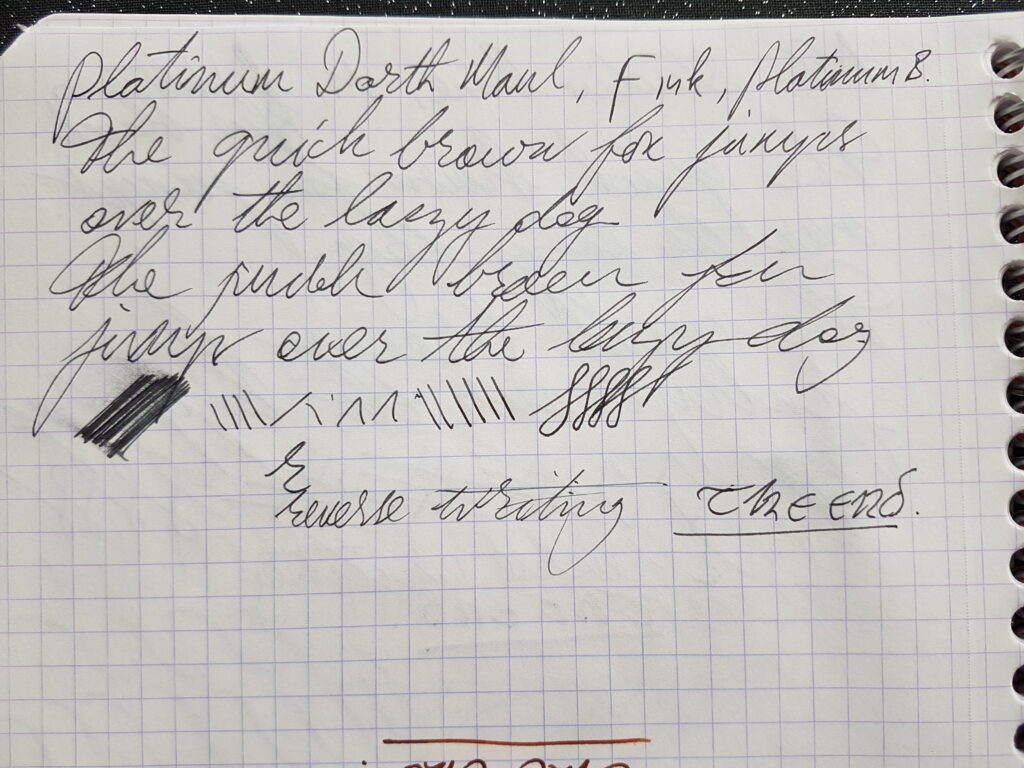 Platinum Darth Maul, F ink, Platinum B.
The quick brown fox jumps
over the lazy dog
The quick brown fox
jumps over the lazy dog
r
reverse writing THE END.